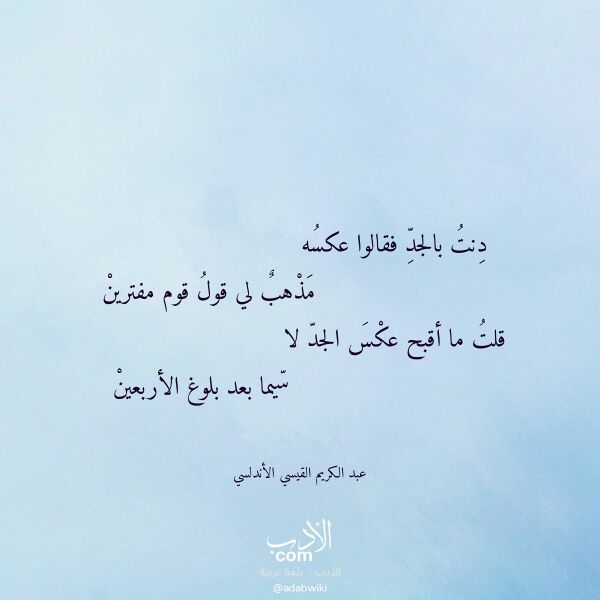 دِنتُ بالجدِّ فقالوا عكسُه
مَذْهبٌ لي قولُ قوم مفترينْ
قلتُ ما أقبح عكْسَ الجدّ لا
سّيما بعد بلوغ الأربعينْ
عبد الكريم القيسي الأندلسي
الأدب
com
الأدب .. بلغة عربية
@adabwiki